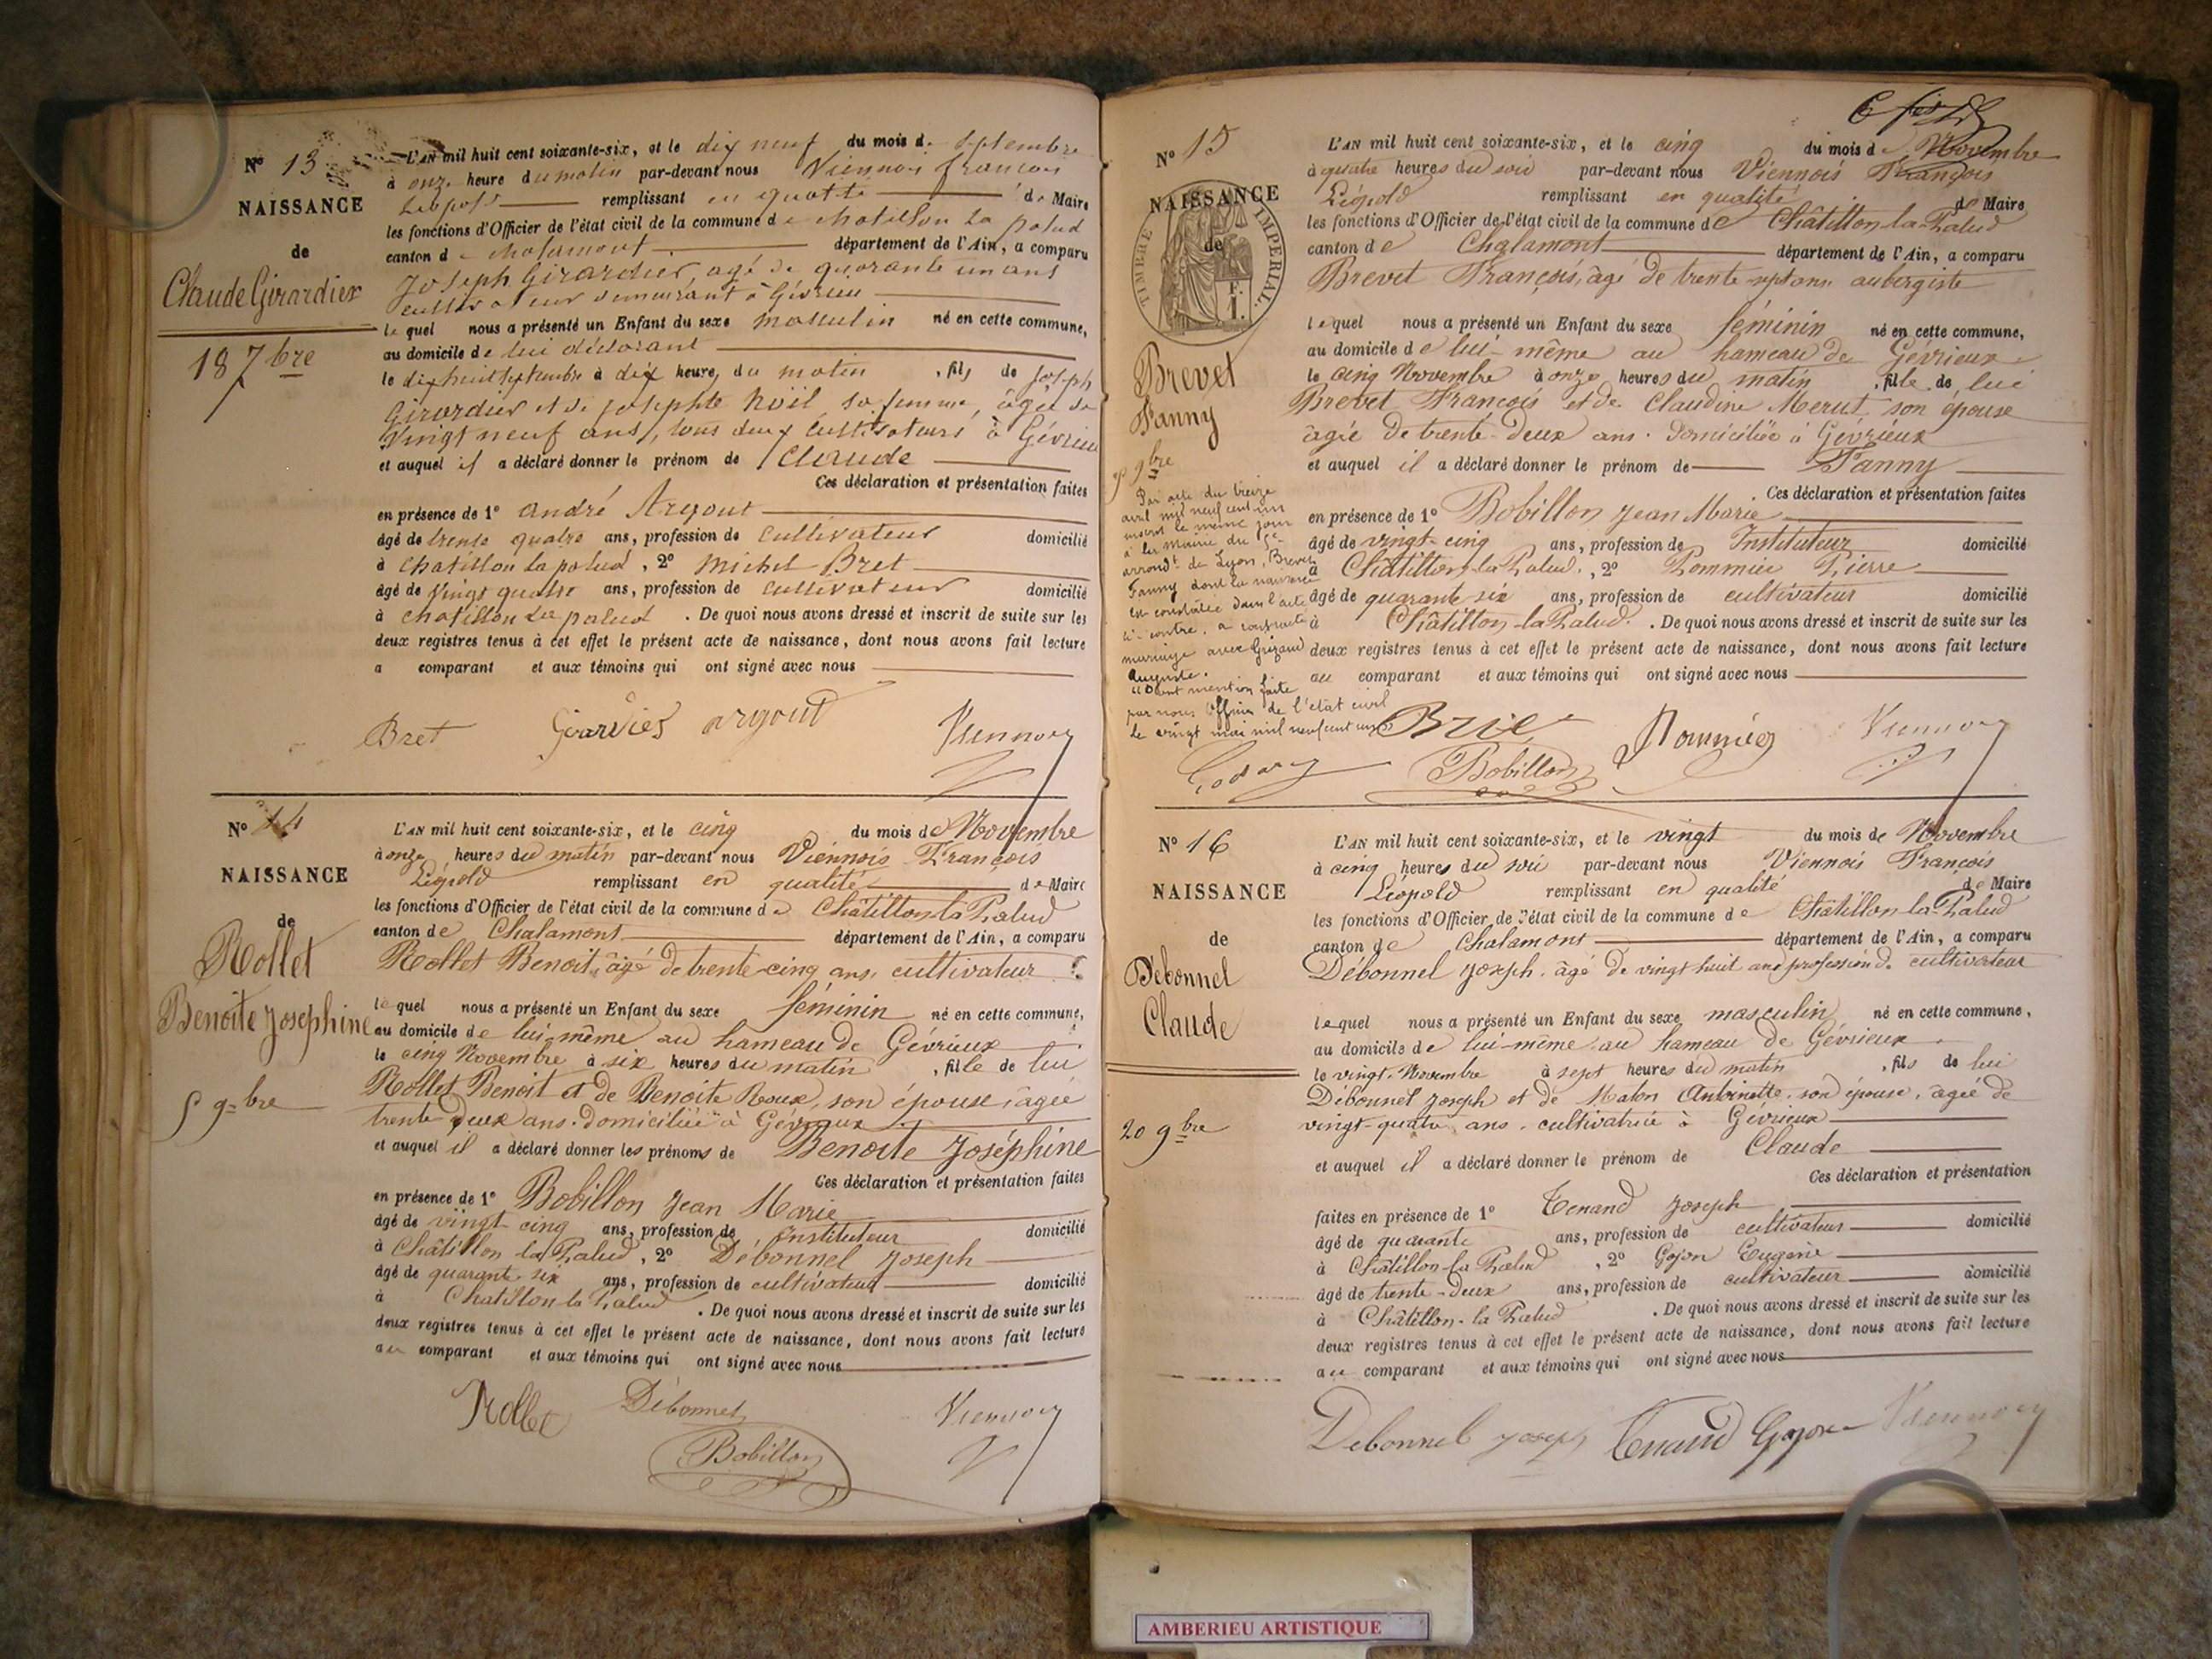 N° 13
NAISSANCE
de
Claude Girardier
18 7bre
L'AN mil huit cent soixante-six, et le dix neuf du mois de Septembre
à onze heure du matin par-devant nous Viennois françois
Léopold remplissant en qualité de Maire
les fonctions d'Officier de l'état civil de la commune de chatillon La palud
canton de chalamont département de l'Ain, a comparu
Joseph Girardier, agé de quarante un ans
cultivateur demeurant à Gévrieu
lequel nous a présenté un Enfant du sexe masculin né en cette commune,
au domicile de lui déclarant
le dix huit septembre à dix heure, du matin, fils de joseph
Girardier et de josephte Noïl sa femme, âgée de
Vingt neuf ans, tous deux cultivateurs à Gévrieu
et auquel il a déclaré donner le prénom de Claude
Ces déclaration et présentation faites
en présence de 1° andré Argout
âgé de trente quatre ans, profession de Cultivateur domicilié
à Chatillon la palud, 2° Michel Bret
âgé de Vingt quatre ans, profession de cultivateur domicilié
à chatillon La palud. De quoi nous avons dressé et inscrit de suite sur les
deux registres tenus à cet effet le présent acte de naissance, dont nous avons fait lecture
a comparant et aux témoins qui ont signé avec nous
Bret Girardier argout Viennois
N° 14
NAISSANCE
de
Rollet
Benoîte Josephine
5 9bre
L'AN mil huit cent soixante-six, et le cinq du mois de Novembre
à onze heures du matin par-devant nous Viennois François
Léopold remplissant en qualité de Maire
les fonctions d'Officier de l'état civil de la commune de Châtillon-la-Palud
canton de Chalamont département de l'Ain, a comparu
Rollet Benoit, âgé de trente-cinq ans, cultivateur
lequel nous a présenté un Enfant du sexe féminin né en cette commune,
au domicile de lui-même au hameau de Gévrieux
le cinq Novembre à six heures du matin, fille de lui
Rollet Benoit et de Benoite Roux, son épouse, âgée
trente deux ans. domiciliée à Gévrieux
et auquel il a déclaré donner les prénoms de Benoite Joséphine
Ces déclaration et présentation faites
en présence de 1° Bobillon Jean Marie
âgé de vingt cinq ans, profession de Instituteur domicilié
à Châtillon la Palud, 2° Débonnel Joseph
âgé de quarante six ans, profession de cultivateur domicilié
à Chatillon la Palud. De quoi nous avons dressé et inscrit de suite sur les
deux registres tenus à cet effet le présent acte de naissance, dont nous avons fait lecture
au comparant et aux témoins qui ont signé avec nous
Rollet Débonnel Viennois
Bobillon
N° 15
NAISSANCE
de
TIMBRE IMPERIAL.
Brevet
Fanny
5 9bre
Par acte du treize
avril mil neuf cent un
inscrit le même jour
à la mairie du
arrondt de Lyon, Brevet
Fanny dont la naissance
est constatée dans l'acte
ci-contre, a contracté
mariage avec Grizard
Auguste.
Dont mention faite
par nous Officier de l'état civil
le vingt mai mil neuf cent un
L'AN mil huit cent soixante-six, et le cinq du mois de Novembre
à quatre heures du soir par-devant nous Viennois François
Léopold remplissant en qualité de Maire
les fonctions d'Officier de l'état civil de la commune de Châtillon-la-Palud
canton de Chalamont département de l'Ain, a comparu
Brevet François, âgé de trente-sept ans aubergiste
lequel nous a présenté un Enfant du sexe féminin né en cette commune,
au domicile de lui-même au hameau de Gévrieux
le cinq Novembre à onze heures du matin, fille de lui
Brevet François et de Claudine Merut son épouse
âgée de trente-deux ans. Domiciliée à Gévrieux
et auquel il a déclaré donner le prénom de Fanny
Ces déclaration et présentation faites
en présence de 1° Bobillon Jean Marie
âgé de vingt-cinq ans, profession de Instituteur domicilié
à Châtillon-la-Palud, 2° Pommier Pierre
âgé de quarante six ans, profession de cultivateur domicilié
à Châtillon-la-Palud. De quoi nous avons dressé et inscrit de suite sur les
deux registres tenus à cet effet le présent acte de naissance, dont nous avons fait lecture
au comparant et aux témoins qui ont signé avec nous
Pommier Viennois
Bobillon
N° 16
NAISSANCE
de
Débonnel
Claude
20 9bre
L'AN mil huit cent soixante-six, et le vingt du mois de Novembre
à cinq heures du soir par-devant nous Viennois François
Léopold remplissant en qualité de Maire
les fonctions d'Officier de l'état civil de la commune de Châtillon-la-Palud
canton de Chalamont département de l'Ain, a comparu
Débonnel Joseph, âgé de vingt huit ans profession de cultivateur
lequel nous a présenté un Enfant du sexe masculin né en cette commune,
au domicile de lui-même au hameau de Gévrieux
le vingt-Novembre à sept heures du matin, fils de lui
Débonnel Joseph et de Maton Antoinette, son épouse, âgée de
vingt-quatre ans, cultivatrice à Gévrieux
et auquel il a déclaré donner le prénom de Claude
Ces déclaration et présentation
faites en présence de 1° Tenand Joseph
âgé de quarante ans, profession de cultivateur domicilié
à Châtillon-la-Palud, 2° Gojon Eugène
âgé de trente-deux ans, profession de cultivateur domicilié
à Châtillon-la Palud. De quoi nous avons dressé et inscrit de suite sur les
deux registres tenus à cet effet le présent acte de naissance, dont nous avons fait lecture
au comparant et aux témoins qui ont signé avec nous
Debonnel Joseph Tenand Gojon Viennois
AMBERIEU ARTISTIQUE